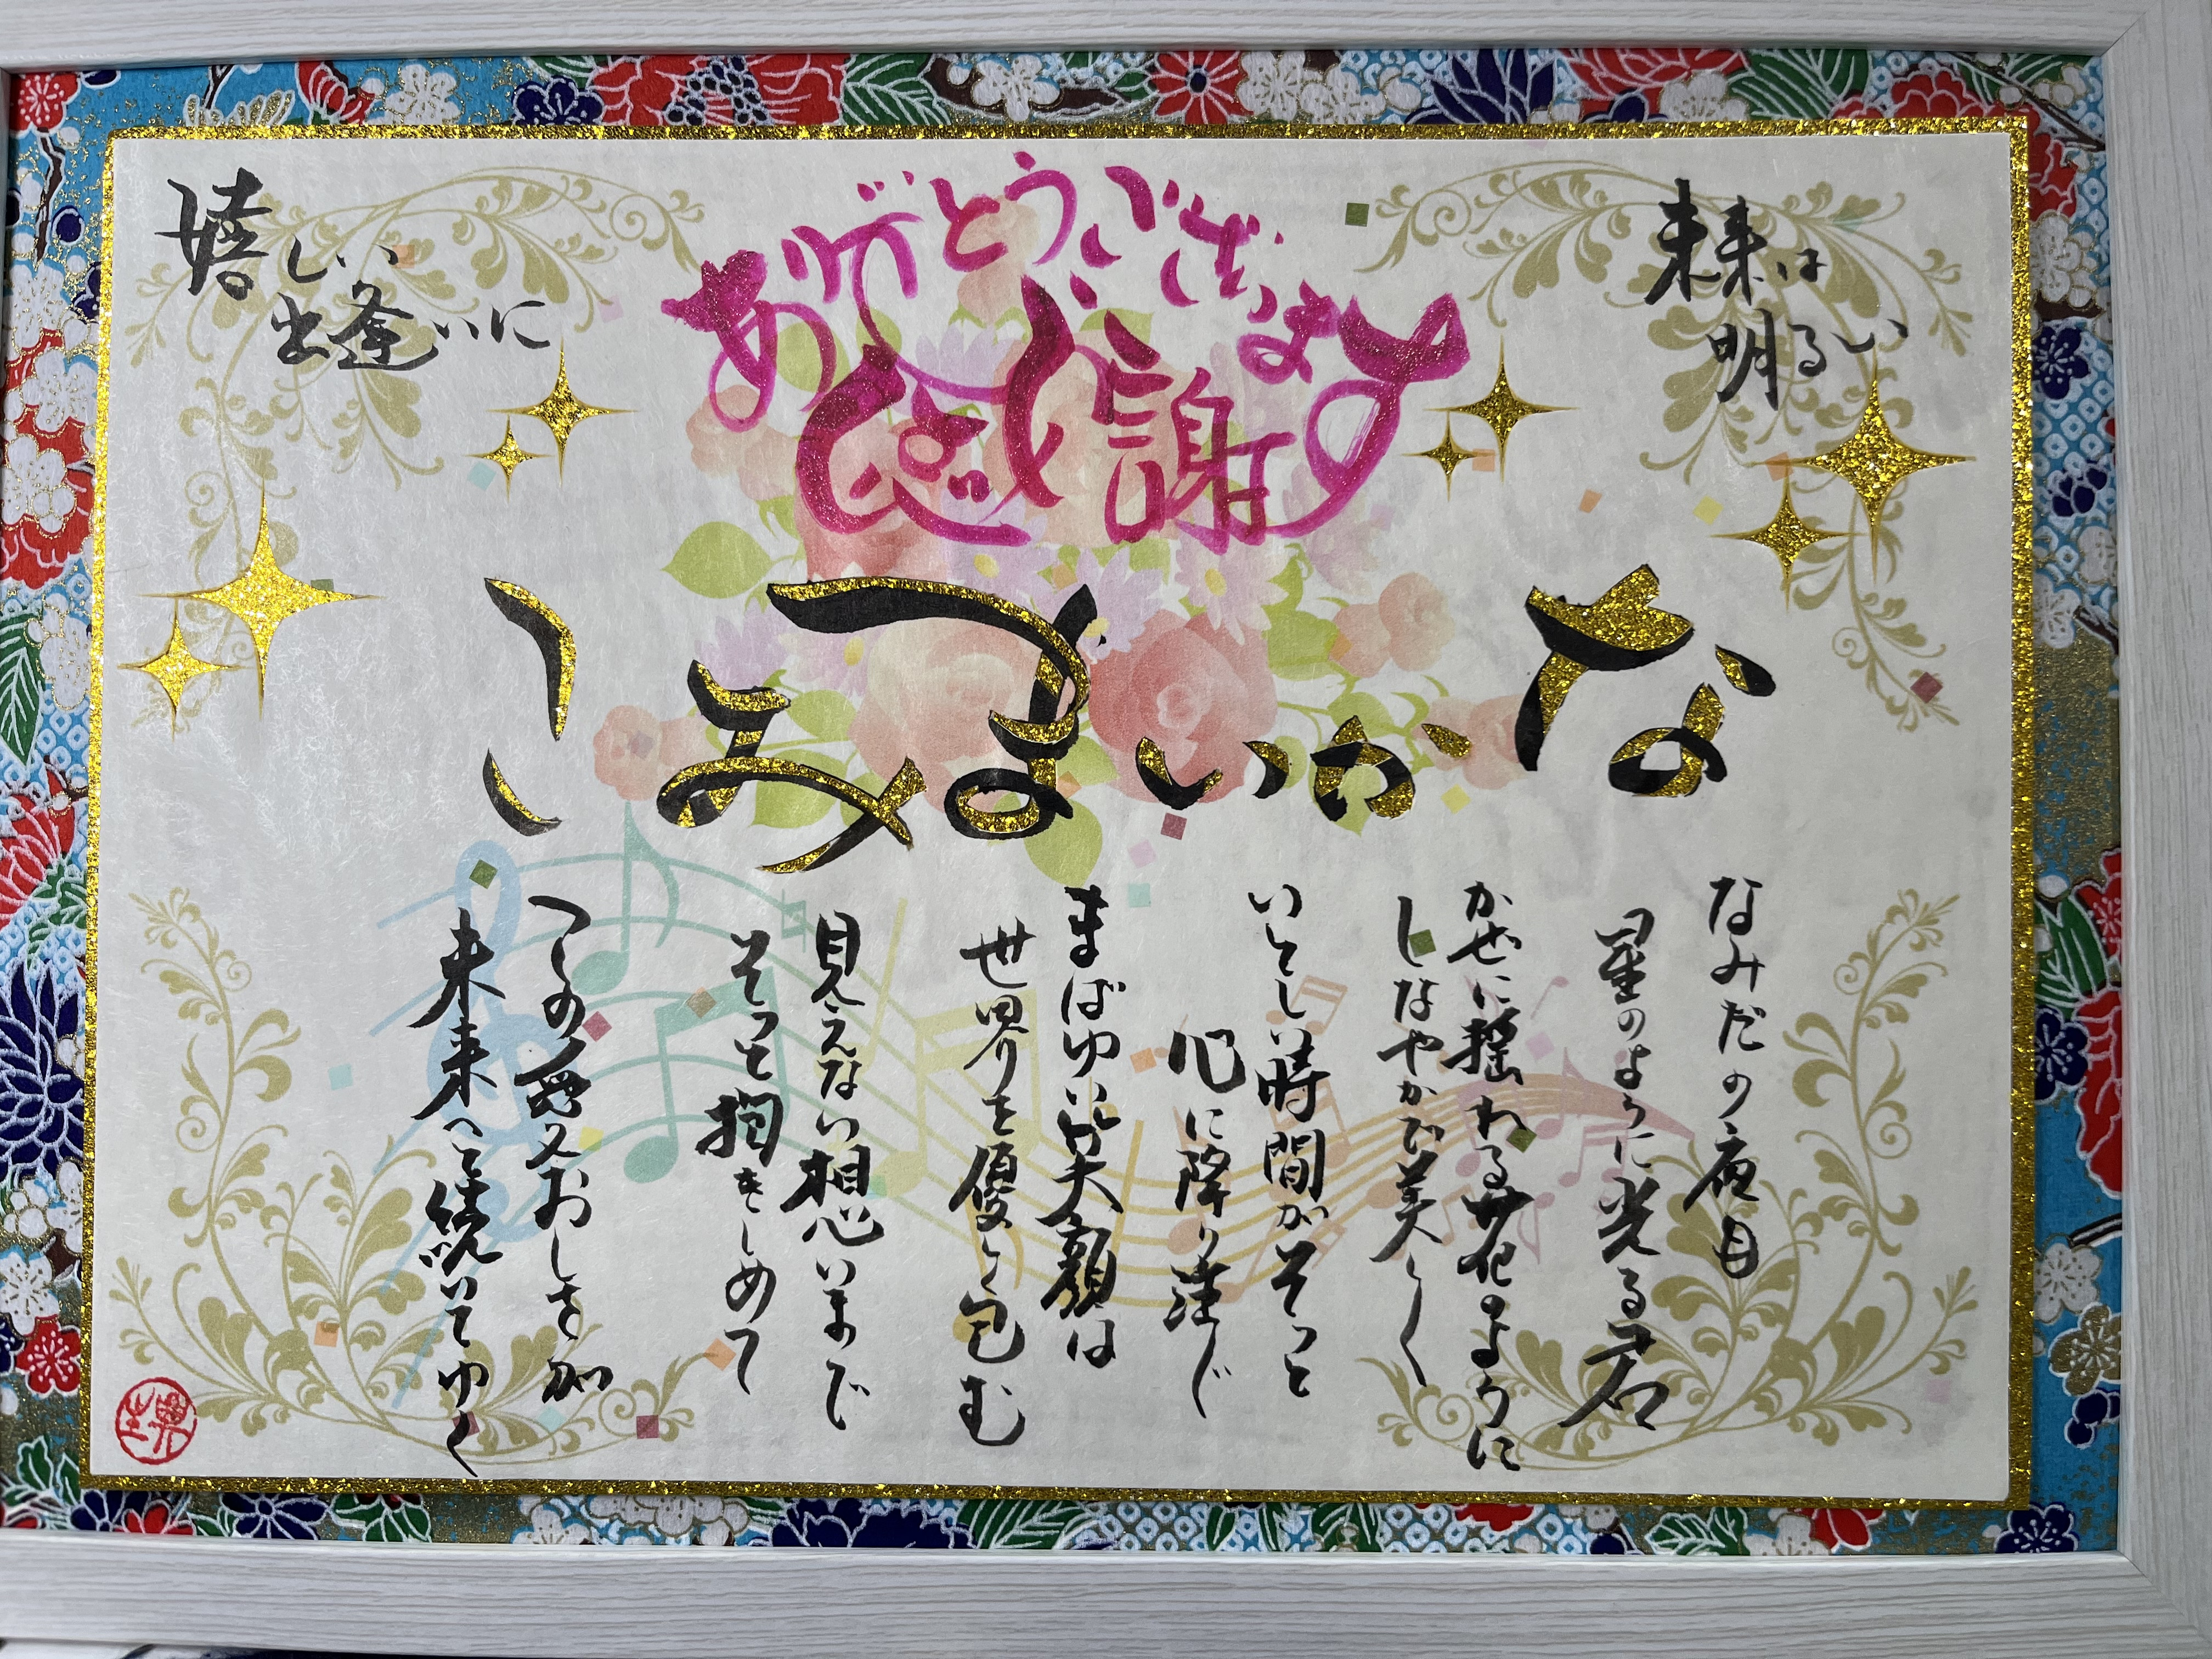 未来は
明るい
ありがとうございます
感謝
嬉しい
出逢いに
なかいまみこ
なみだの夜
星のように光る君
かぜに揺れる花のように
しなやかで美しく
いとしい時間がそっと
心に降り注ぐ
まばゆい笑顔は
世界を優しく包む
見えない想いまで
そっと抱きしめて
この愛おしさが
未来へと続いてゆく